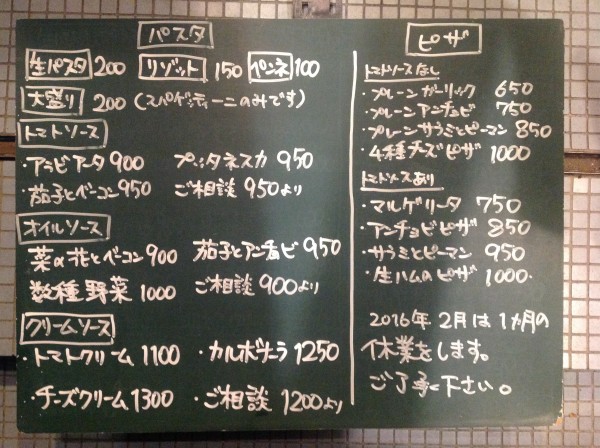 パスタ
生パスタ 200 リゾット 150 ペンネ 100
大盛り 200 (スパゲッティーニのみです)
トマトソース
・アラビアータ 900 プッタネスカ 950
・茄子とベーコン 950 ご相談 950より
オイルソース
菜の花とベーコン 900 茄子とアンチョビ 950
数種野菜 1000 ご相談 900より
クリームソース
・トマトクリーム 1100 ・カルボナーラ 1250
・チーズクリーム 1300 ・ご相談 1200より
ピザ
トマトソースなし
・プレーンガーリック 650
・プレーンアンチョビ 750
・プレーンサラミとピーマン 850
・4種チーズピザ 1000
トマトソースあり
・マルゲリータ 750
・アンチョビピザ 850
・サラミとピーマン 950
・生ハムのピザ 1000
2016年 2月は1ヵ月の
休業をします。
ご了承下さい。